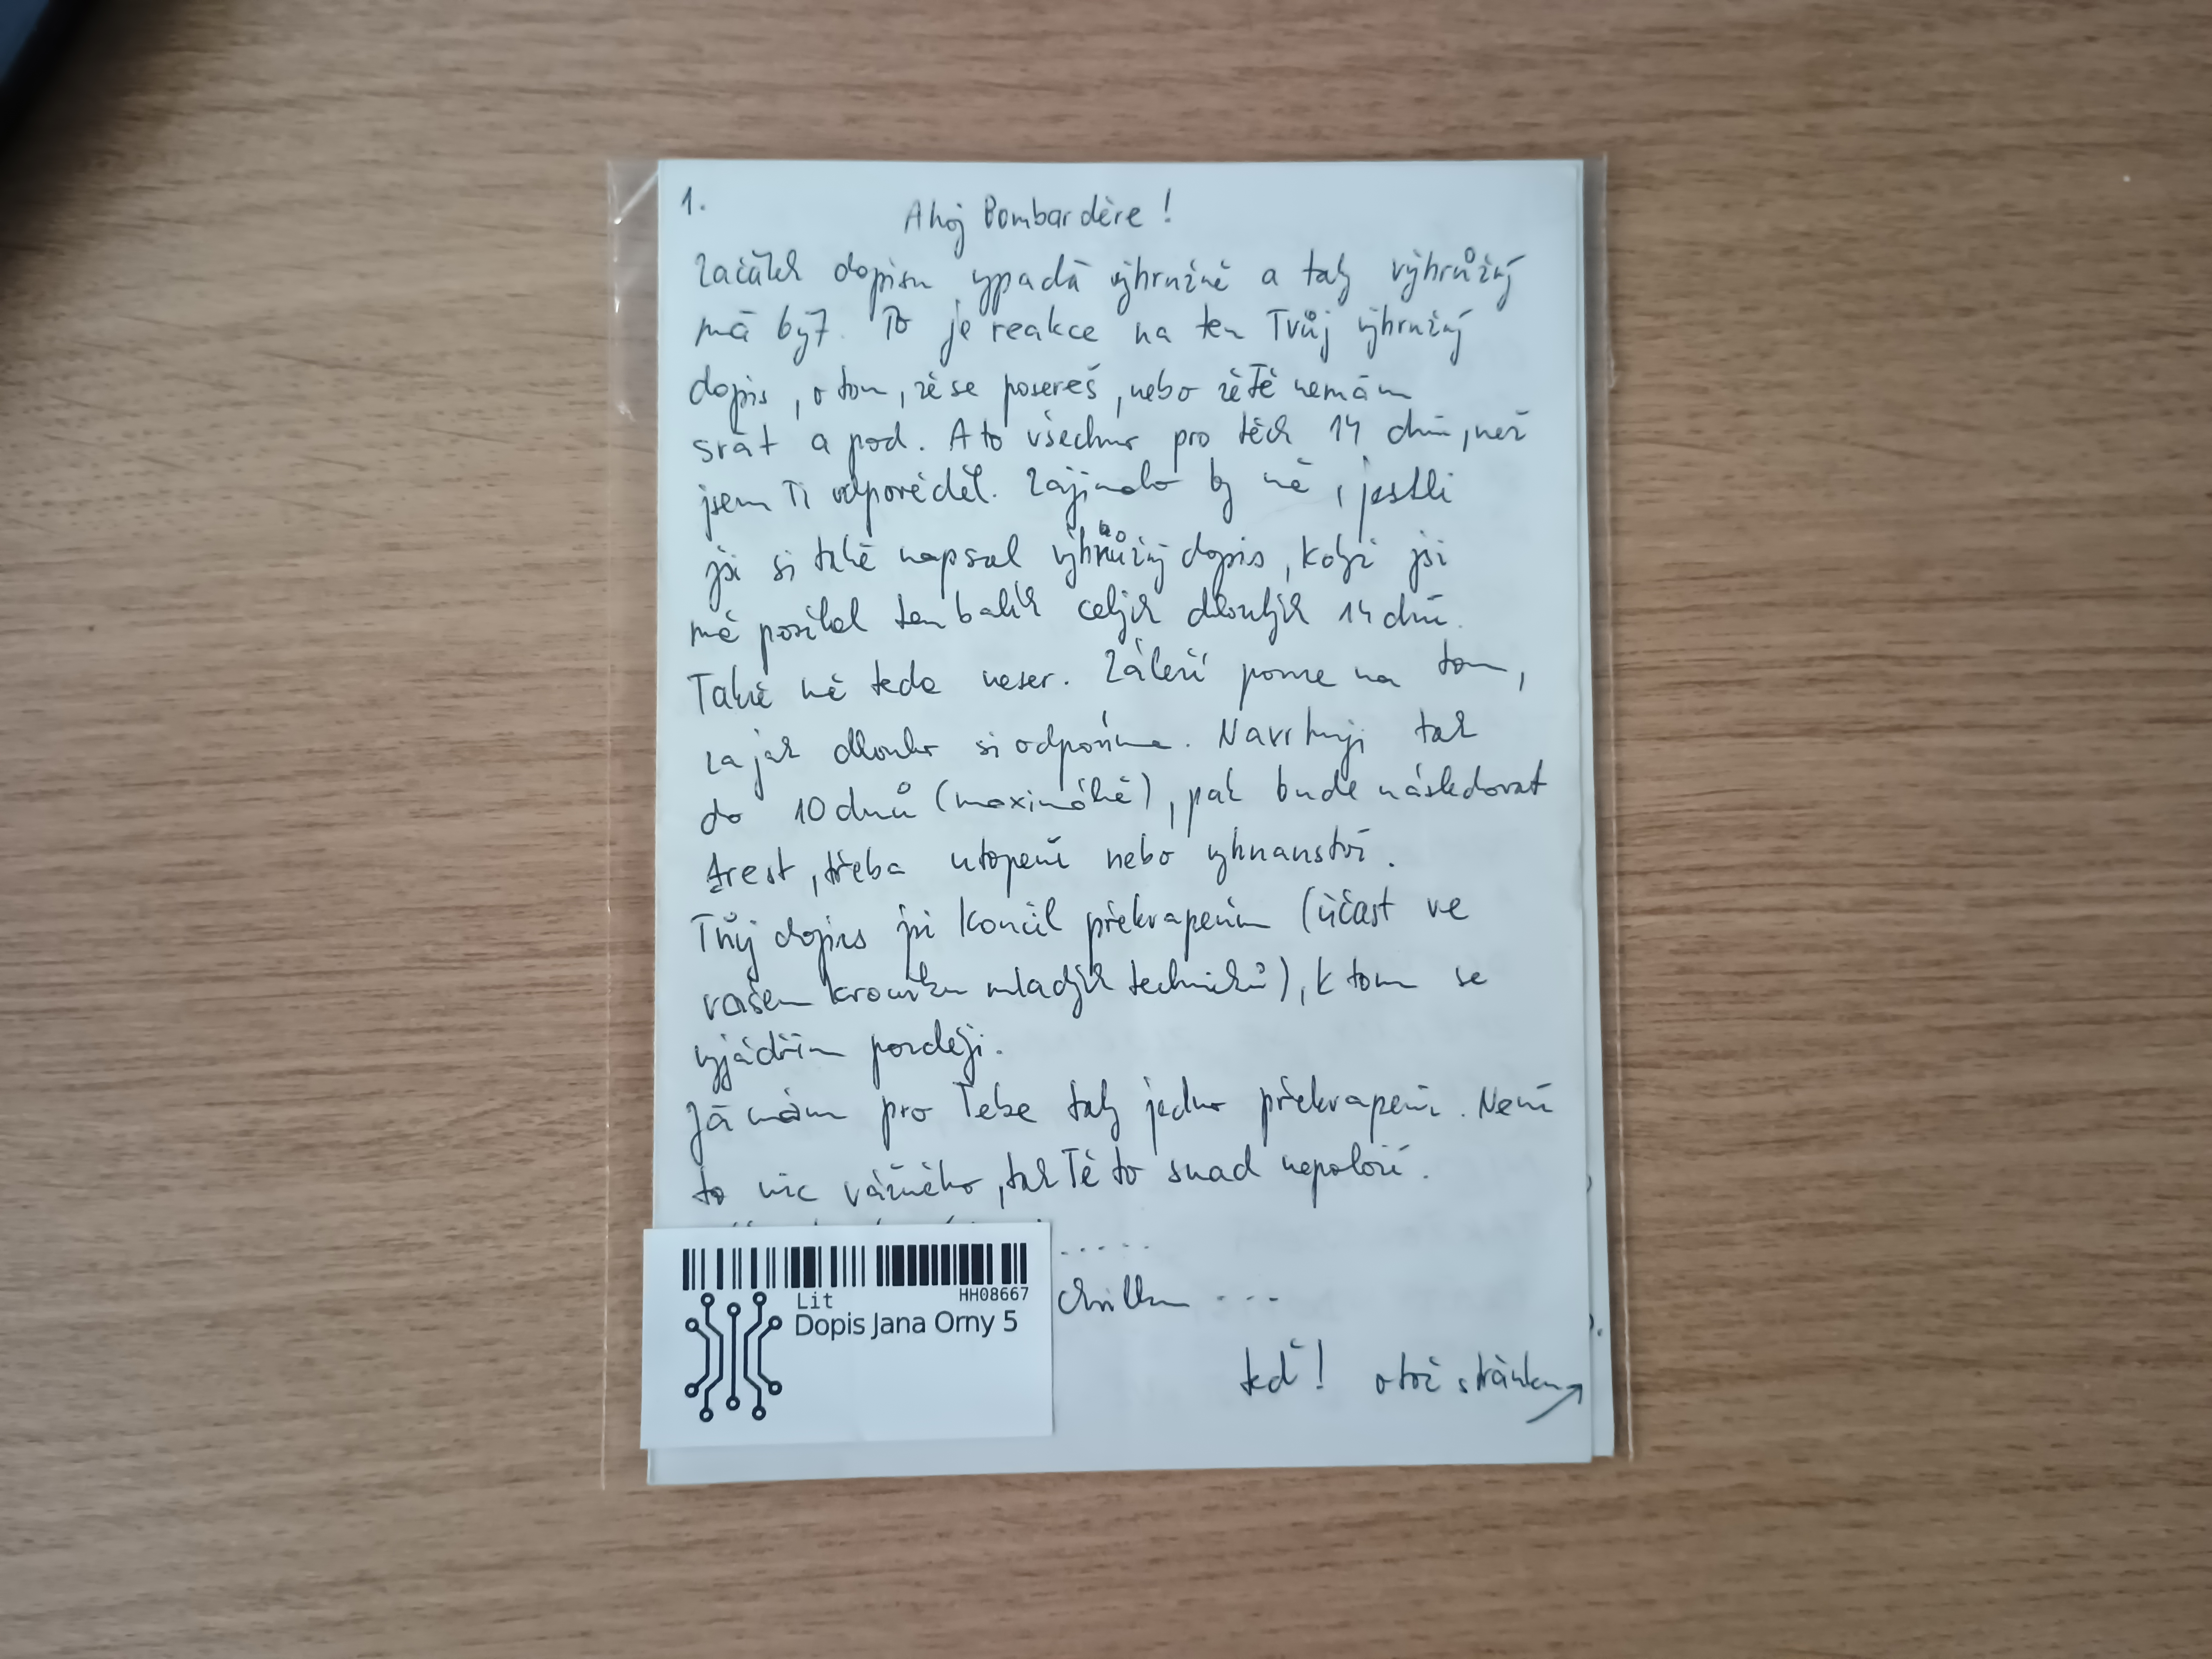 1.
Ahoj Bombardére!
Začátek dopisu vypadá výhružně a taky výhrůžný
má být. To je reakce na ten Tvůj výhružný
dopis, o tom, že se posereš, nebo že Tě nemám
srát a pod. A to všechno pro těch 14 dnů, než
jsem Ti odpověděl. Zajímalo by mě, jestli
jsi si také napsal výhrůžný dopis, když jsi
mě posílal ten balík celých dlouhých 14 dnů.
Také mě teda neser. Záleží pouze na tom,
za jak dlouho si odpovíme. Navrhuji tak
do 10 dnů (maximálně), pak bude následovat
trest, třeba utopení nebo vyhnanství.
Tvůj dopis jsi končil překvapením (účast ve
vašem kroužku mladých techniků), k tom se
vyjádřím později.
Já mám pro Tebe taky jedno překvapení. Není
to nic vážného, tak Tě to snad nepoloží.
.....
chvilku ...
teď! otoč stránku
Lit
HH08667
Dopis Jana Orny 5